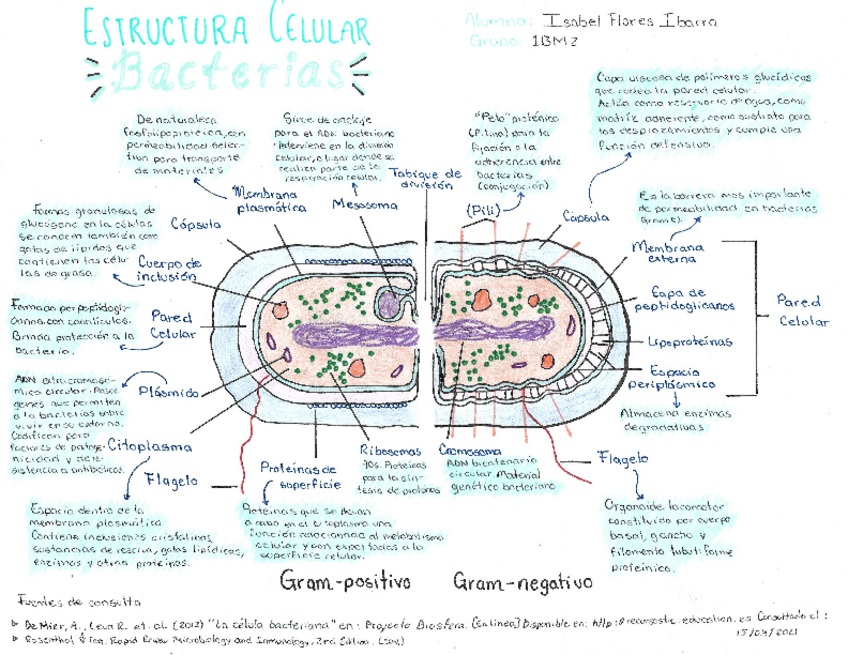 ESTRUCTURA CELULAR
Bacterias
Alumna: Isabel Flores Ibarra
Grupo: 1BM2
De naturaleza
fosfolipoproteica, con
permeabilidad selec-
tiva para transporte
de materiales
Sirve de anclaje
para el ADN bacteriano
interviene en la división
celular, o lugar donde se
realiza parte de la
respiración celular.
"Pelo" proteínico
(Pilina) para la
fijación o la
adherencia entre
bacterias
(conjugación)
Capa viscosa de polímeros glucídicos
que rodea la pared celular.
Actúa como reservorio de agua, como
matriz adherente, como sustrato para
los desplazamientos y cumple una
función defensiva.
Es la barrera mas importante
de permeabilidad en bacterias
Gram(-).
Membrana
plasmática
Mesosoma
Tabique de
división
(Pili)
Capsula
Formas granulosas de
glucógeno en la células
se conocen también como
gotas de lípidos que
contienen las célu
las de grasa.
Cápsula
Cuerpo de
inclusión
Membrana
externa
Capa de
peptidoglicanos
Lipoproteínas
Espacio
periplásmico
Pared
Celular
Almacena enzimas
degradativas
Formado por peptidogli-
canos con
Brinda protección a la
bacteria.
Pared
Celular
ADN extracromosó-
mico circular. Posee
genes que permiten
a la bacterias sobre
vivir en su entorno.
Codifican para
factores de patoge-
nicidad y de re-
sistencia a antibóticos.
Plásmido
Citoplasma
Flagelo
Proteínas de
superficie
Ribosomas
70s. Proteínas
para la sín-
tesis de proteínas
Cromosoma
ADN bicatenario
circular Material
genético bacteriano
Flagelo
Espacio dentro de la
membrana plasmática
Contiene inclusiones cristalinas,
sustancias de reserva, gotas lipídicas,
enzimas y otras proteínas.
Proteínas que se llevan
a cabo en el citoplasma una
función relacionada al metabolismo
celular y son exportadas a la
superficie celular.
Organoide locomotor
constituido por cuerpo
basal, gancho y
filamento tubuliforme
proteínico.
Gram-positivo
Gram-negativo
Fuentes de consulta
De Mier, A., Leva R. et. al. (2012) "La célula bacteriana" en: Proyecto Biosfera. [En línea] Disponible en: education.es Consultado el:
15/03/2021
Rosenthal Tan. Rapid Review Microbology and Inmunology, 3rd Edition. (2011)